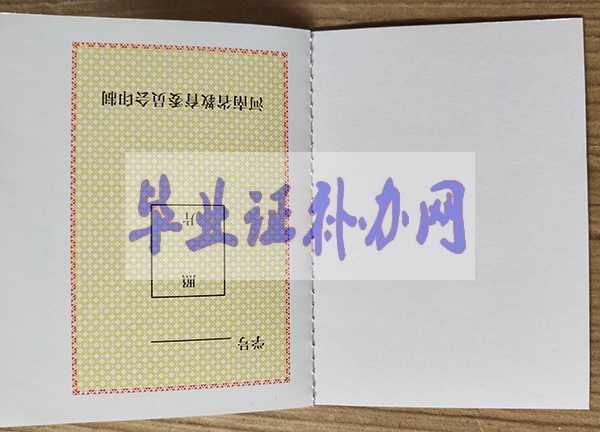 学号
照
片
河南省教育委员会印制
毕业证补办网